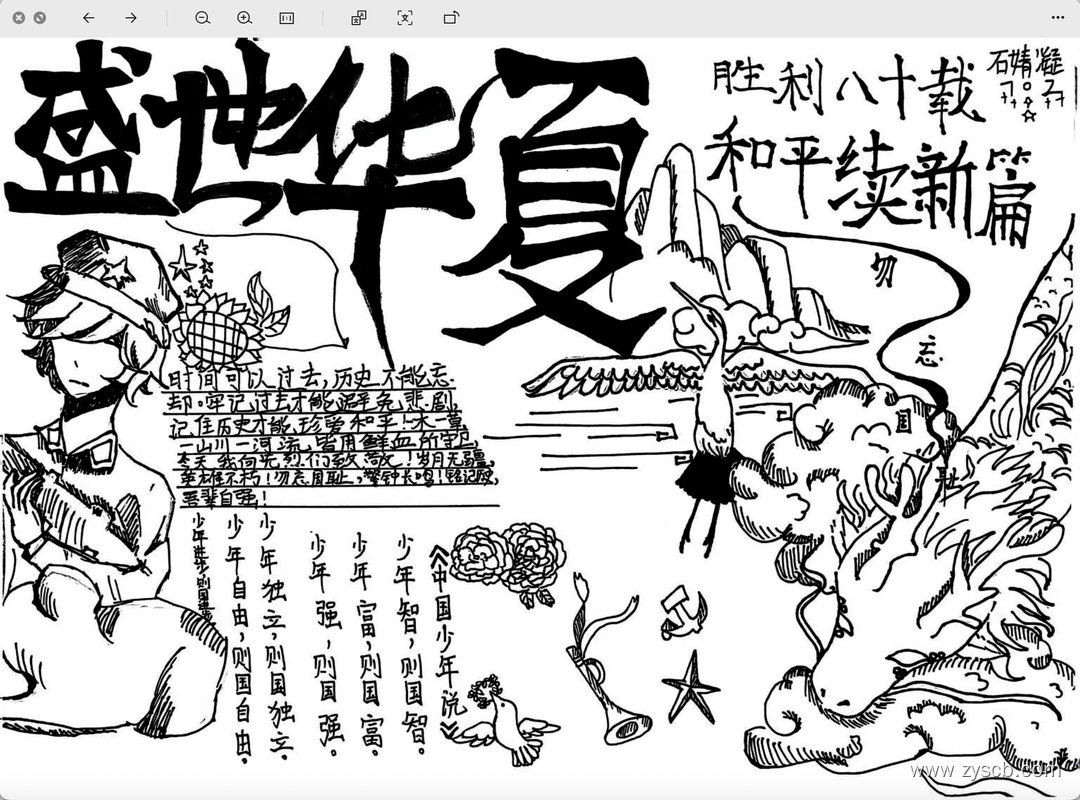 盛世华夏
胜利八十载
和平续新篇
石婧凝
勿
忘
国
耻
时间可以过去,历史不能忘
却。牢记过去才能避免悲剧,
记住历史才能珍爱和平!木一草,
一山川一河流,皆用鲜血所守护,
今天我向先烈们致敬!岁月无疆,
英雄不朽!勿忘国耻,警钟长鸣!铭记历史,
吾辈自强!
《中国少年说》
少年智,则国智。
少年富,则国富。
少年强,则国强。
少年独立,则国独立。
少年自由,则国自由。
少年进步则国进步
www.zyscb.com